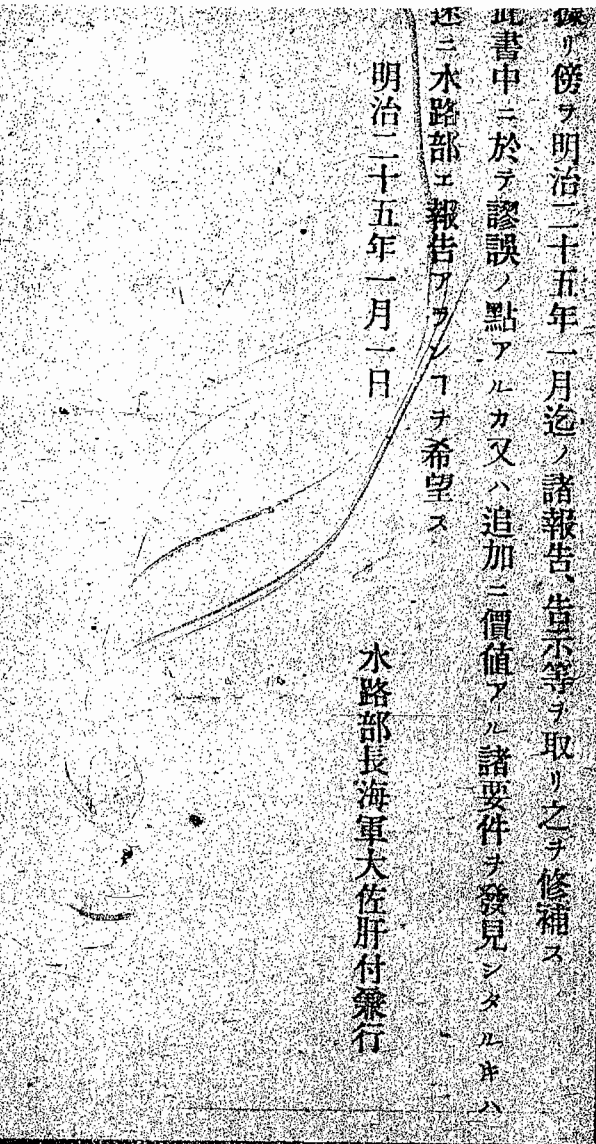 リ傍ヲ明治二十五年一月迄ノ諸報告、告示等ヲ取リ之ヲ修補ス
此書中ニ於テ謬誤ノ點アルカ又ハ追加ニ價値アル諸要件ヲ發見シタルキハ
速ニ水路部エ報告アランヿヲ希望ス
明治二十五年一月一日
水路部長海軍大佐肝付兼行